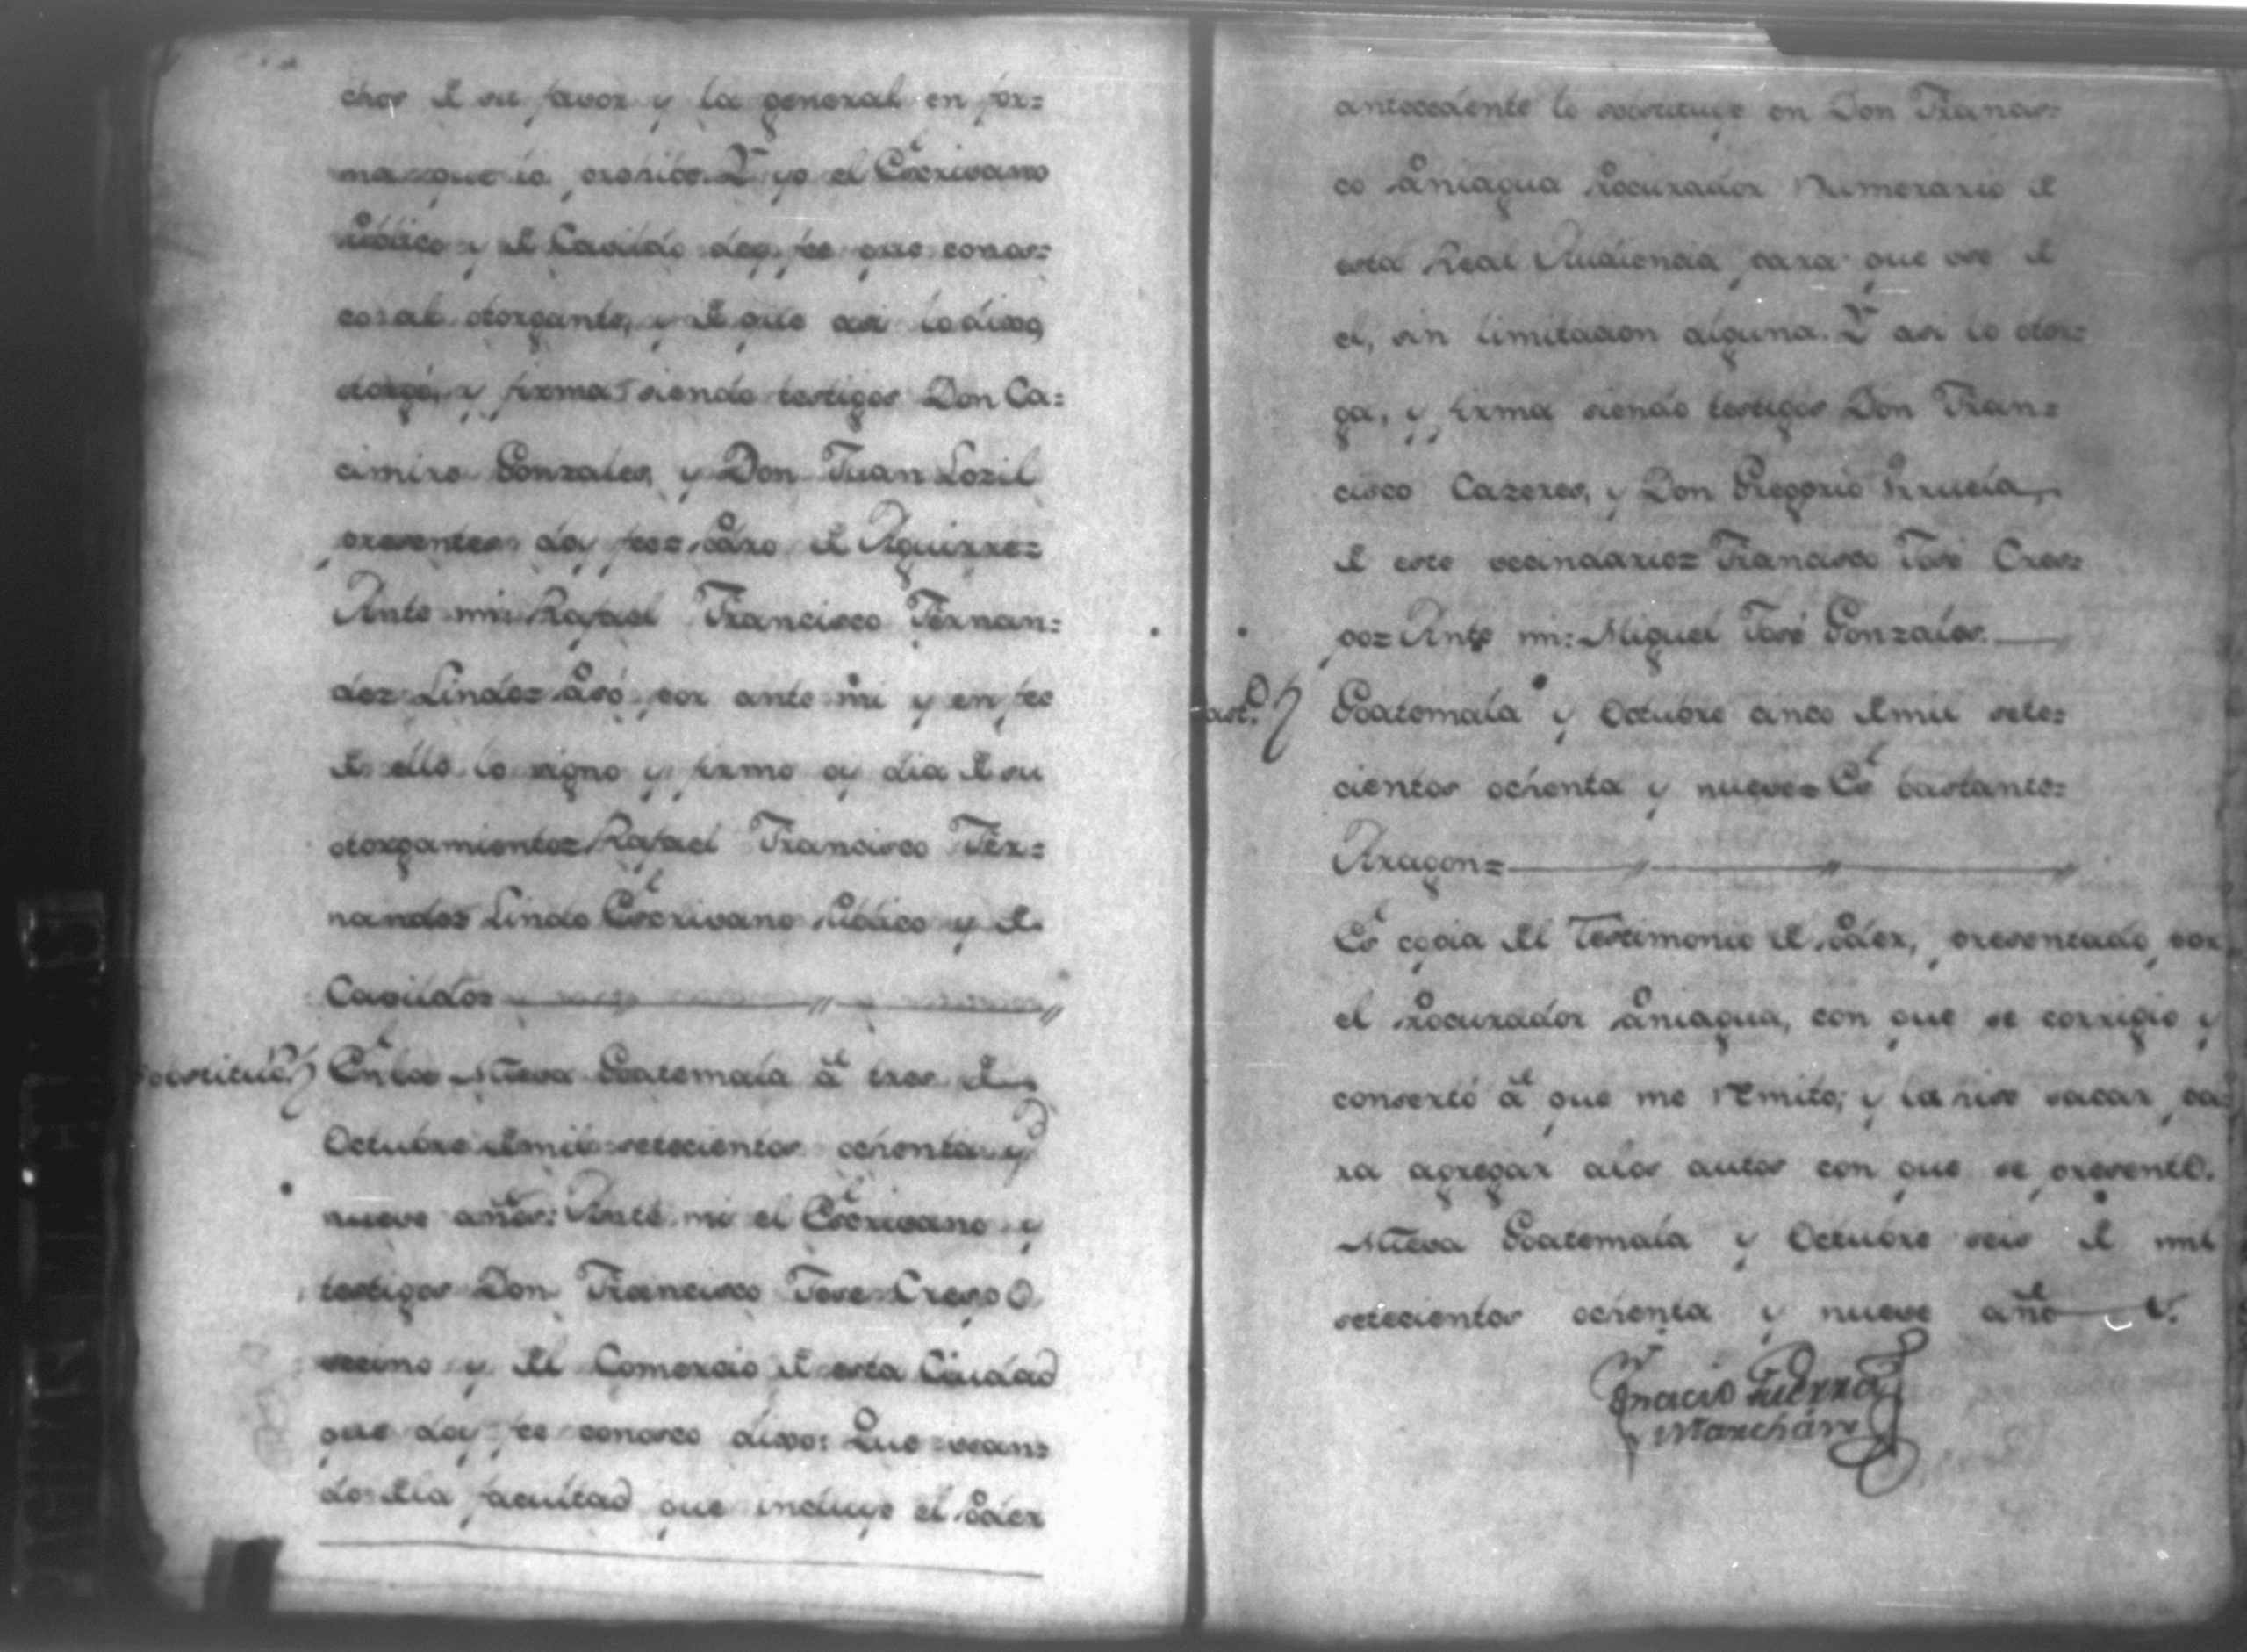 chos de su favor y la general en for=
ma que lo prohibe. Y yo el Escrivano
Publico y de Cavildo doy fee que conos=
co al otorgante, y de que asi lo dixo,
otorgó, y firma siendo testigos Don Ca=
cimiro Gonzales, y Don Juan Lozil
presentes doy fee= Pedro de Aguirre=
Ante mi: Rafael Francisco Fernan=
dez Lindo= Pasó por ante mi y en fee
de ello lo signo y firmo oy dia de su
otorgamiento= Rafael Francisco Fer=
nandez Lindo Escrivano Publico y de
Cavildo=
Sostituc.n En la Nueva Goatemala á tres de
Octubre de mil setecientos ochenta y
nueve años: Ante mi el Escrivano y
testigos Don Francisco Jose Crespo
vecino y del Comercio de esta Ciudad
que doy fee conosco dixo: Que usan=
do de la facultad que incluye el Poder
antecedente lo sostituye en Don Francis=
co Paniagua Procurador Numerario de
esta Real Audiencia para que use de
el, sin limitacion alguna. Y asi lo otor=
ga, y firma siendo testigos Don Fran=
cisco Cazeres, y Don Gregorio Urruela,
de este vecindario= Francisco José Cres=
po= Ante mi: Miguel José Gonzales.
Goatemala y Octubre cinco de mil sete=
cientos ochenta y nueve= Es bastante=
Aragon=
Es copia del Testimonio de Poder, presentado por
el Procurador Paniagua, con que se corrigio y
consertó á que me remito; y la hise sacar pa=
ra agregar a los autos con que se presentó.
Nueva Goatemala y Octubre seis de mil
setecientos ochenta y nueve año
Ignacio Guerra
y Marchán